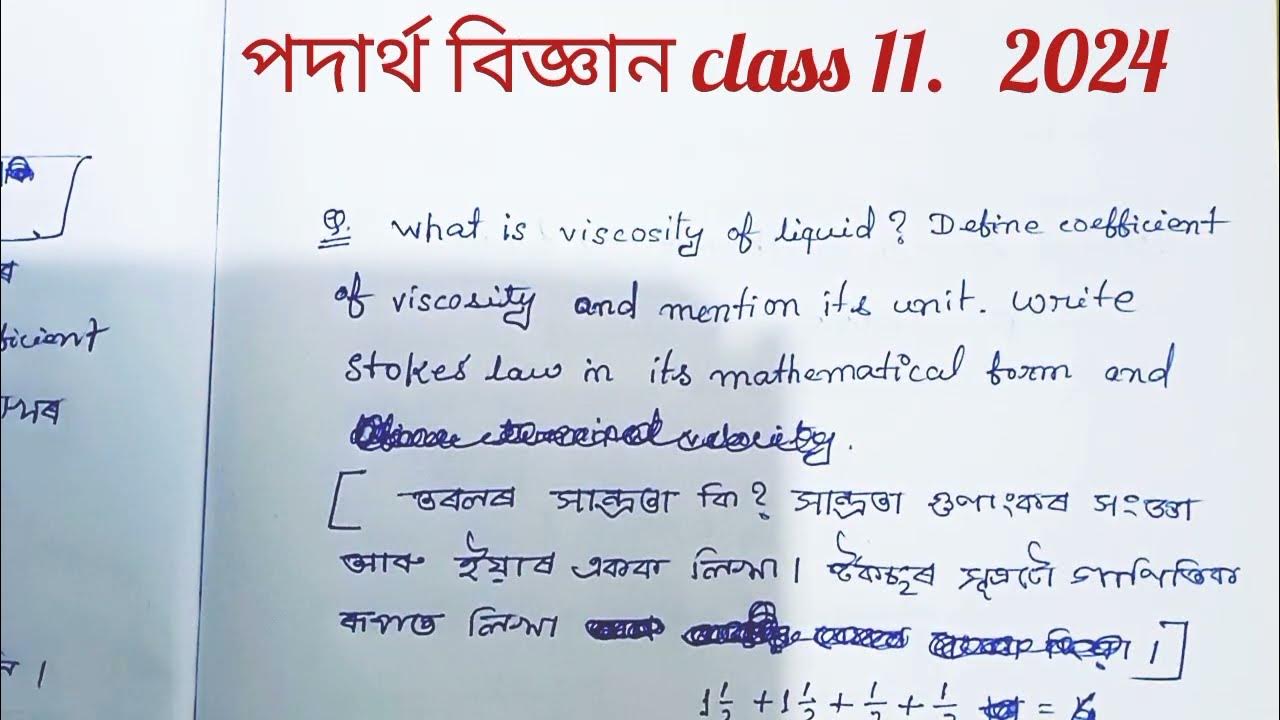 পদার্থ বিজ্ঞান class 11. 2024
Q. What is viscosity of liquid? Define coefficient
of viscosity and mention its unit. Write
Stokes law in its mathematical form and
[তৰলৰ সান্দ্ৰতা কি? সান্দ্ৰতা গুণাংকৰ সংজ্ঞা
আৰু ইয়াৰ একক লিখা। ষ্টকছৰ সূত্ৰটো গাণিতিক
ৰূপত লিখা।]
1½ + 1½ + ½ + ½ =
ficient